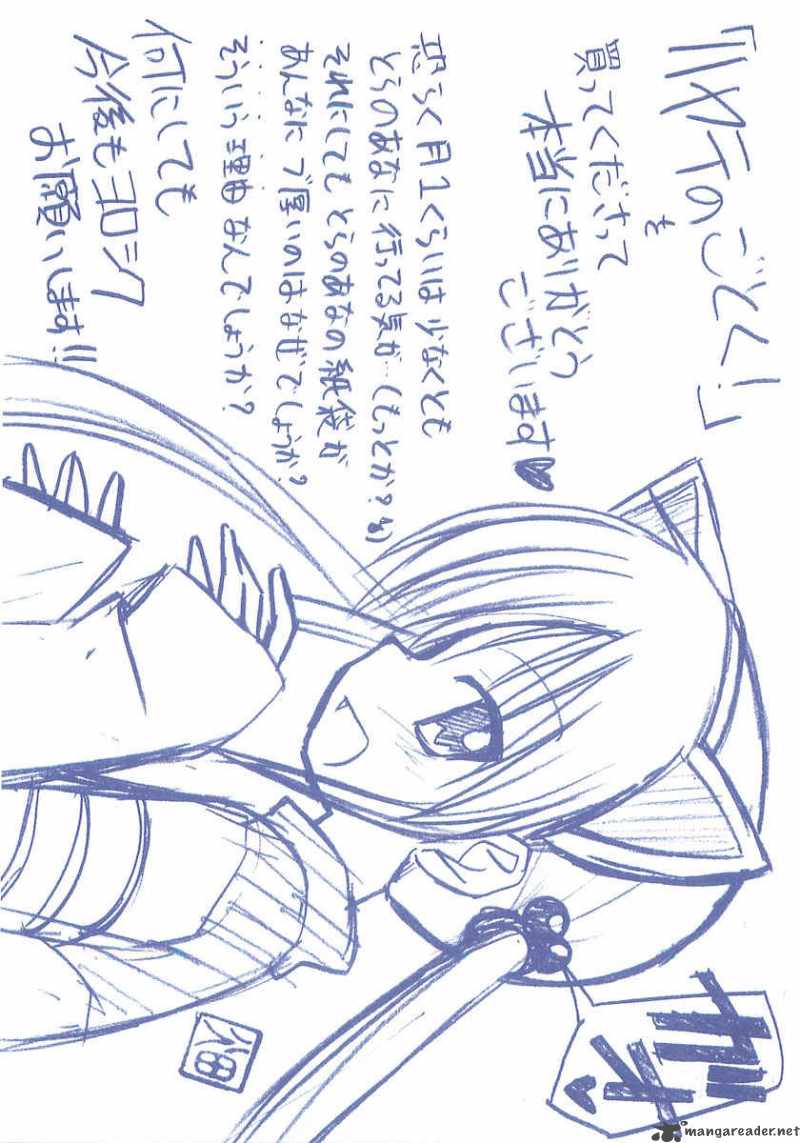 「ハヤテのごとく！」
を
買ってくださって
本当にありがとう
ございます♥
恐らく月1くらいは少なくとも
とらのあなに行ってる気が…(もっとか？汗)
それにしてもとらのあなの紙袋が
あんなにブ厚いのはなぜでしょうか？
そういう理由なんでしょうか？
何にしても
今後もヨロシク
お願いします!!
mangareader.net